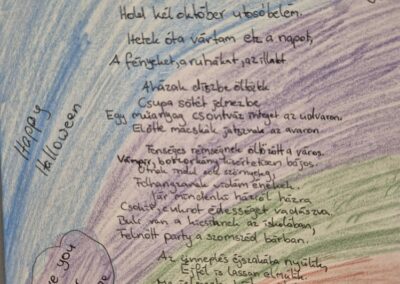 Hold kél október utosó belém.
Hetek óta vártam ezt a napot,
A fényeket, a ruhákat, az illatot
A házak díszbe öltöztek
Csupa sötét jelmezbe
Egy műanyag csontváz integet az udvaron.
Előtte macskák játszanak az avaron.
Fenséges rémségnek öltözött a város.
Vámpír, boszorkány kísértetiesen bájos.
Utnak indul sok szörnyeteg,
Felhangzanak vidám énekek.
Jár mindenki házról házra
Csokit, cukrot édességet vadászva.
Buli van a kicsiknek az iskolában,
Felnőtt party a szomszéd bárban.
Az ünneplés éjszakába nyúlik,
Éjfél is lassan elmúlik.
Happy
Halloween
you